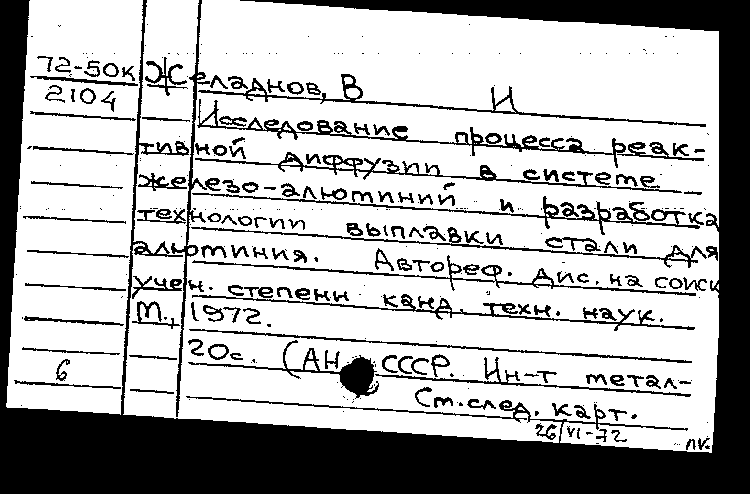 72-50к Желаднов, В И
2104
Исследование процесса реак-
тивной диффузии в системе
железо-алюминий и разработка
технологии выплавки стали для
алюминия. Автореф. дис. на соиск
учен. степени канд. техн. наук.
М., 1972.
20с. (АН СССР. Ин-т метал-
6
См. след. карт.
26/VI-72